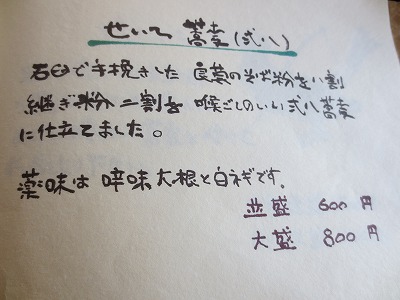 せいろ 蕎麦(弐八)
石臼で手挽きした 良質のそば粉を八割
継ぎ粉 二割を 喉ごしのいい弐八蕎麦
に仕立てました。
薬味は 啐味大根と白ネギです。
並盛 600円
大盛 800円